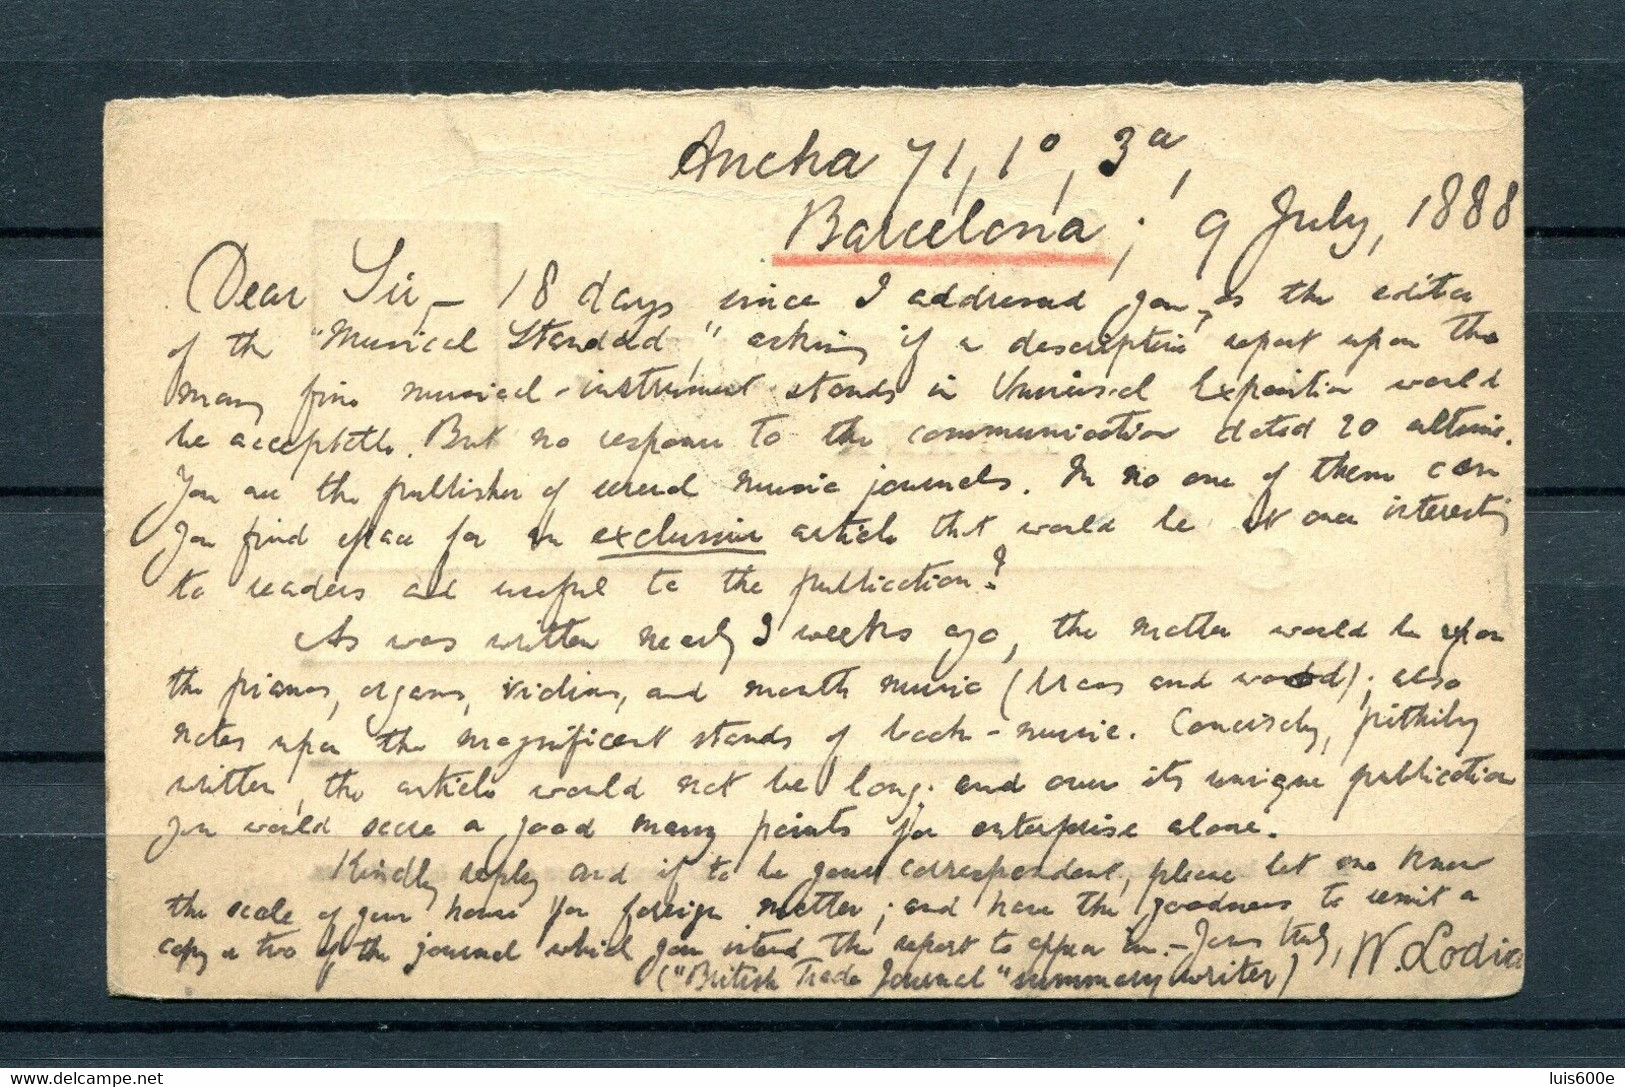 Ancha 71, 1º, 3ª,
Barcelona; 9 July, 1888
Dear Sir – 18 days since I addressed you, as the editor
of the "Musical Standard", asking if a descriptive report upon the
many fine musical-instrument stands in Universal Exposition would
be acceptable. But no response to the communication dated 20 ultimo.
You are the publisher of several music journals. In no one of them can
you find space for an exclusive article that would be at once interesting
to readers and useful to the publication?
As was written nearly 3 weeks ago, the matter would be upon
the pianos, organs, violins, and mouth music (brass and wood); also
notes upon the magnificent stands of book-music. Concisely, pithily
written, the article would not be long; and over its unique publication
you would score a good many points for enterprise alone.
Kindly reply and if to be your correspondent, please let me know
the scale of your house for foreign matter; and have the goodness to remit a
copy or two of the journal which you intend the report to appear in. – Yours truly, W. Lodia
("British Trade Journal" summary writer)
luis600e